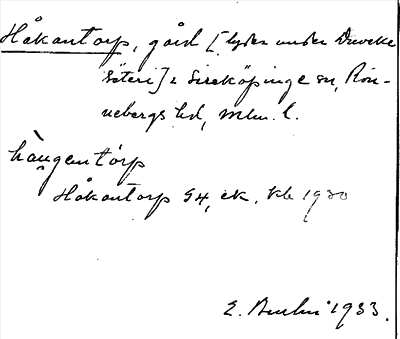 Håkantorp, gård [lyder under Duveke
säteri] i Sireköpinge sn, Rön-
nebergs hd, Mlm. l.
hàu̯gentórp
Håkantorp G4, ek. kb 1920
E. 1933.